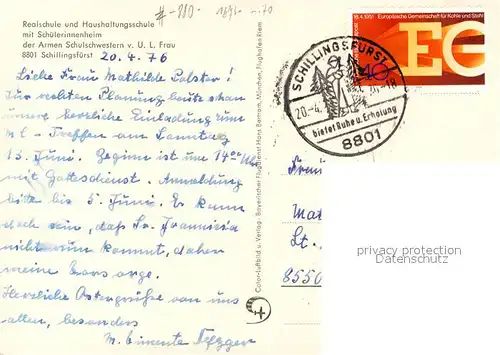 #-880- 1891-n70
Realschule und Haushaltungsschule
mit Schülerinnenheim
der Armen Schulschwestern v. U. L. Frau
8801 Schillingsfürst 20.4.76
Liebe Frau Mathilde Polster!
Zur rechten Planung heute schon
unsere herzliche Einladung zum
KL - Treffen am Sonntag
13. Juni. Beginn ist um 14⁰⁰ Uhr
mit Gottesdienst. Anmeldung
bitte bis 5. Juni. Es kann
doch sein, daß Sr.
nicht kommt, daher
meine Vorsorge.
Herzliche Ostergrüße von uns
allen, besonders
M.
Color-Luftbild u. Verlag - Bayerischer Flugdienst Hans Bertram, München, Flughafen Riem
18.4.1951 Europäische Gemeinschaft für Kohle und Stahl
EG
40
SCHILLINGSFÜRST
20.-4. 76-18
bietet Ruhe u. Erholung
8801
Frau
Mat
St.
8550
privacy protection
Datenschutz